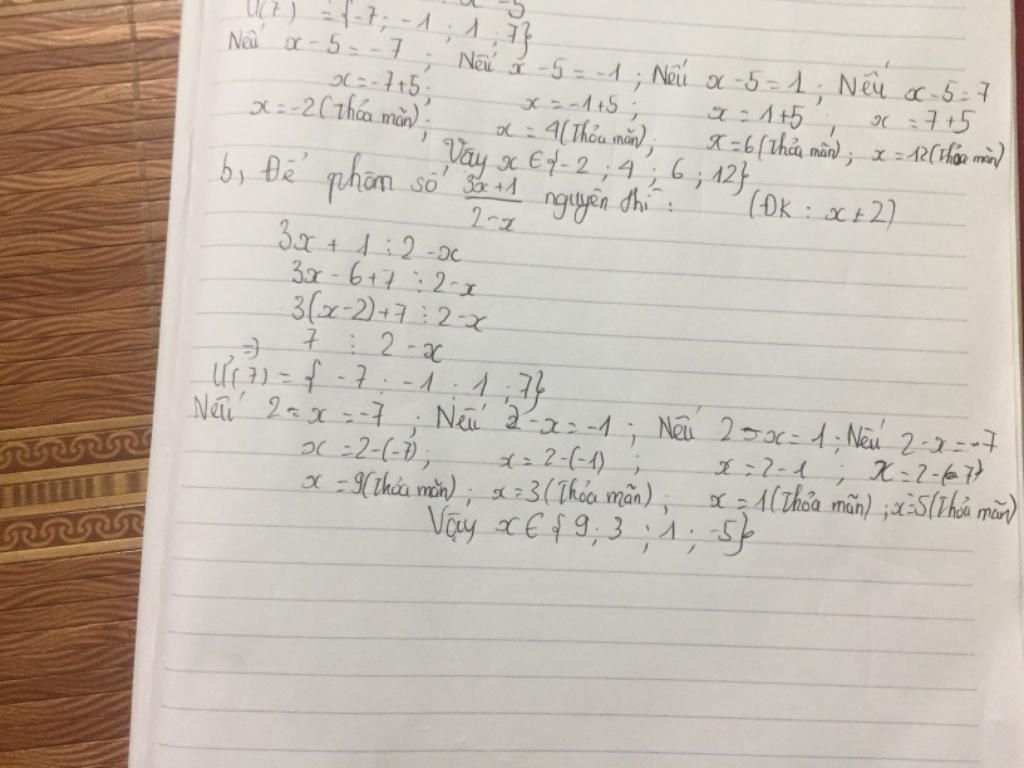 Ư(7) = {-7; -1 ; 1 ; 7}
Nếu x - 5 = -7 ; Nếu x - 5 = -1 ; Nếu x - 5 = 1 ; Nếu x - 5 = 7
x = -7+5 ; x = -1+5 ; x = 1+5 ; x = 7+5
x = -2 (Thỏa mãn) ; x = 4 (Thỏa mãn) ; x = 6 (Thỏa mãn) ; x = 12 (Thỏa mãn)
Vậy x ∈ {-2 ; 4 ; 6 ; 12}
b, Để phân số \frac{3x+1}{2-x} nguyên thì : (ĐK : x ≠ 2)
3x + 1 ⋮ 2 - x
3x - 6 + 7 ⋮ 2 - x
3(x - 2) + 7 ⋮ 2 - x
=> 7 ⋮ 2 - x
Ư(7) = { -7 ; -1 ; 1 ; 7}
Nếu 2 - x = -7 ; Nếu 2 - x = -1 ; Nếu 2 - x = 1 ; Nếu 2 - x = 7
x = 2-(-7) ; x = 2-(-1) ; x = 2-1 ; x = 2-7
x = 9 (Thỏa mãn) ; x = 3 (Thỏa mãn) ; x = 1 (Thỏa mãn) ; x = -5 (Thỏa mãn)
Vậy x ∈ { 9 ; 3 ; 1 ; -5}